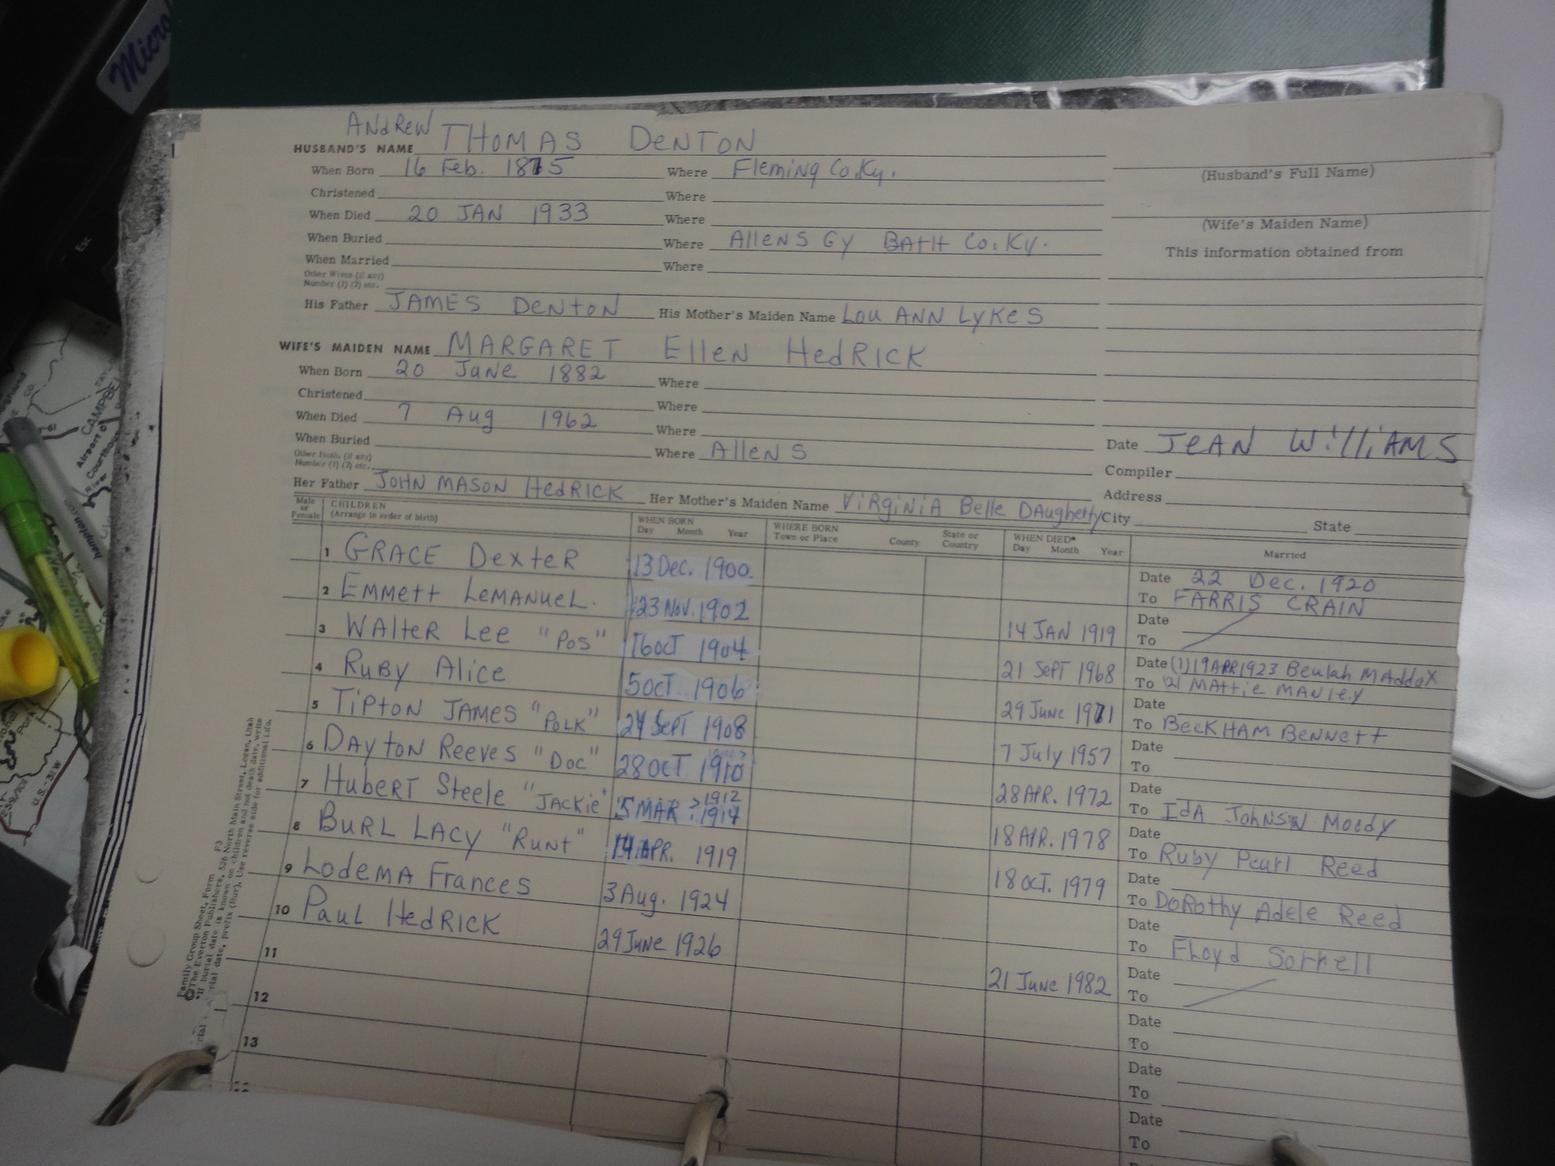 Micro
Esc
ANdREW THOMAS DeNTON
HUSBAND'S NAME
When Born 16 Feb. 1875 Where Fleming Co.Ky.
(Husband's Full Name)
Christened Where
When Died 20 JAN 1933 Where
(Wife's Maiden Name)
When Buried Where AllenS Gy BATH Co. Ky.
This information obtained from
When Married Where
Other Wives (if any)
Number (1) (2) etc.
His Father JAMES DeNtoN His Mother's Maiden Name Lou ANN LyKeS
WIFE'S MAIDEN NAME MARGARET EllEN HedRICK
When Born 20 June 1882 Where
Christened Where
When Died 7 Aug 1962 Where
Date JEAN WilliAMS
When Buried Where AlleNS
Compiler
Number (1) (2) etc.
Her Father JOHN MASON HedRICK Her Mother's Maiden Name ViRgiNiA Belle DAughetty
Address
City State
Male or Female CHILDREN (Arrange in order of birth) WHEN BORN Day Month Year WHERE BORN Town or Place County State or Country WHEN DIED* Day Month Year Married
1 GRACE DexteR 13 Dec. 1900 Date 22 Dec. 1920
To FARRIS CRAIN
2 EMMEtt LeMANueL. 23 Nov. 1902 14 JAN 1919 Date
To
3 WAlteR Lee "Pos" 16 oct 1904 21 SePT 1968 Date (1) 19 APR 1923 Beulah MAddoX
To 2) MAttie MANley
4 RuBy Alice 5 OCT 1906 29 June 1971 Date
To BecKHAM BeNNett
5 TiPtoN JAMES "PoLK" 24 SePT 1908 7 July 1957 Date
To
6 DAytoN Reeves "Doc" 28 OCT 1910 28 APR. 1972 Date
To IdA JohNSoN Moody
7 HubeRt Steele "JAckie" 5 MAR > 1912 1914 18 APR. 1978 Date
To Ruby Pearl Reed
8 BuRL LACy "Runt" 14 APR. 1919 18 OCT. 1979 Date
To DoRothy Adele Reed
9 LodeMA FRANCES 3 Aug. 1924 Date
To Floyd Sorrell
10 PAuL HedRICK 29 June 1926 21 June 1982 Date
To
11 Date
To
12 Date
To
13 Date
To
Family Group Sheet, Form F3
©The Everton Publishers, 526 North Main Street, Logan, Utah
*If burial date is known on children and not death date, write
burial date, prefix (Bur), Use reverse side for additional info.
CAMPBE
Airport
Courthouse
U.S.-31W